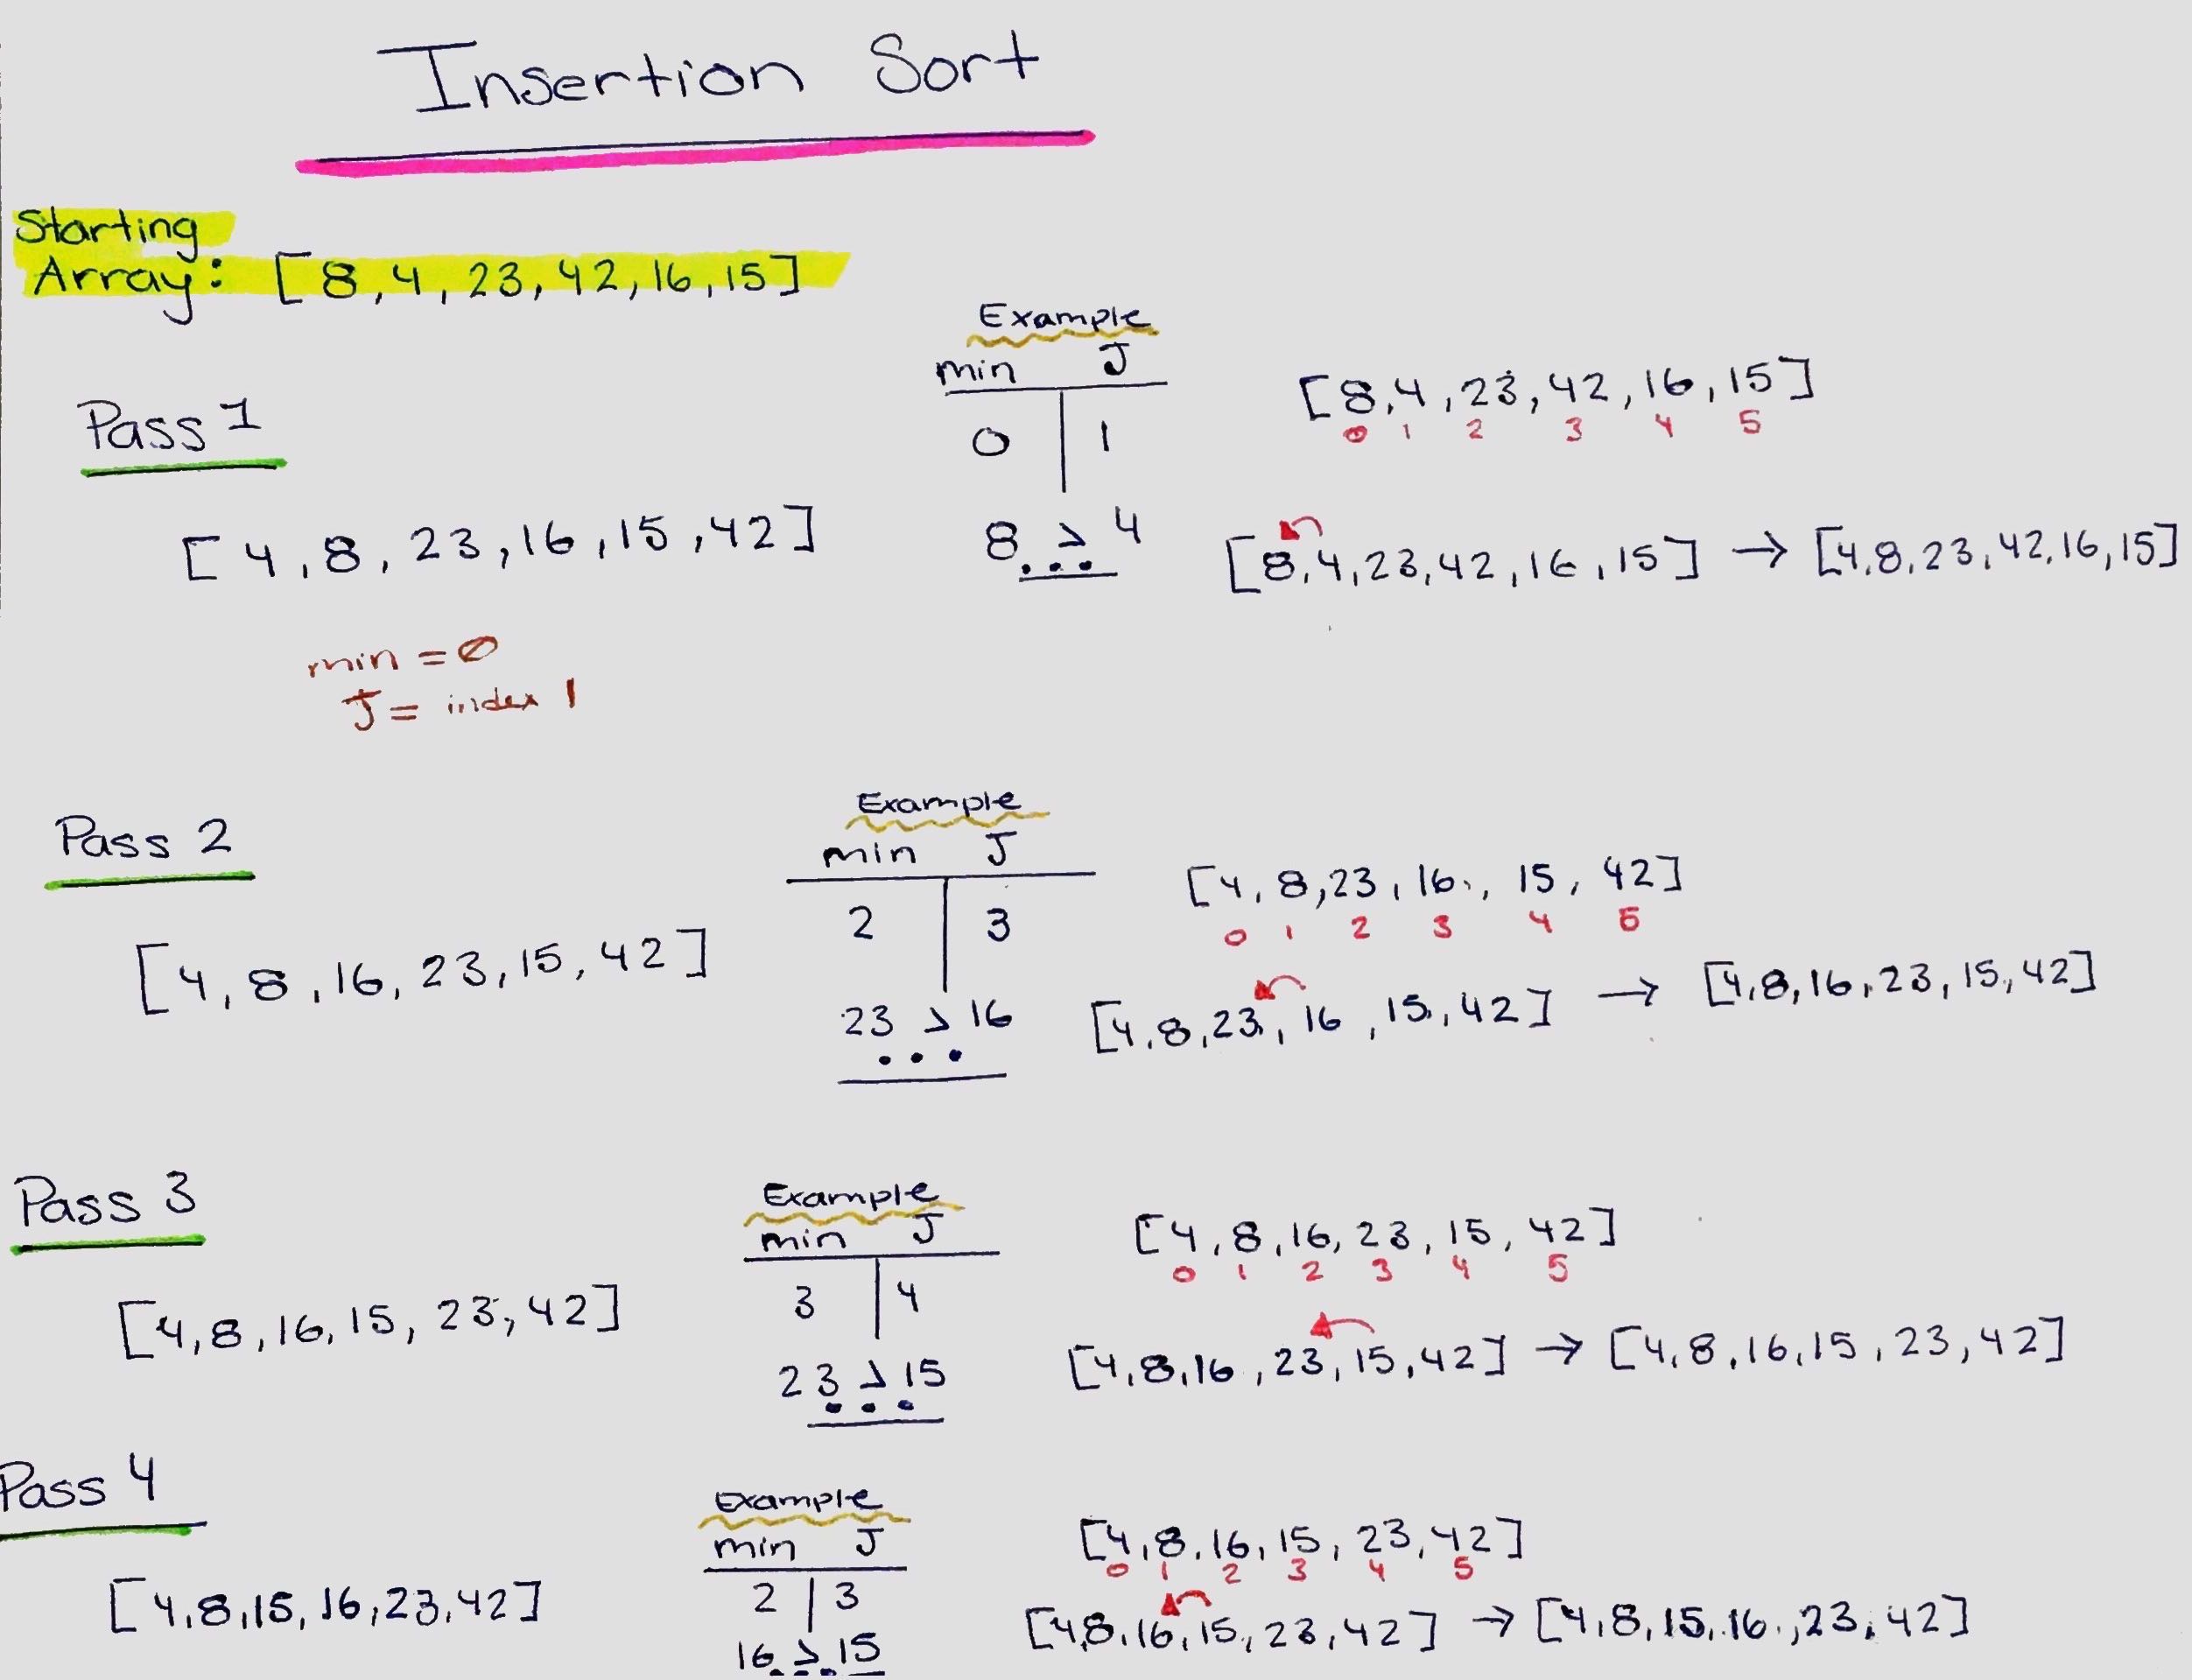 Insertion Sort
Starting
Array: [8,4,23,42,16,15]
Pass 1
[4,8,23,16,15,42]
min = 0
J = index 1
Example
min J
0 1
8 > 4
[8,4,23,42,16,15]
0 1 2 3 4 5
[8,4,23,42,16,15] → [4,8,23,42,16,15]
Pass 2
[4,8,16,23,15,42]
Example
min J
2 3
23 > 16
[4,8,23,16,15,42]
0 1 2 3 4 5
[4,8,23,16,15,42] → [4,8,16,23,15,42]
Pass 3
[4,8,16,15,23,42]
Example
min J
3 4
23 > 15
[4,8,16,23,15,42]
0 1 2 3 4 5
[4,8,16,23,15,42] → [4,8,16,15,23,42]
Pass 4
[4,8,15,16,23,42]
Example
min J
2 3
16 > 15
[4,8,16,15,23,42]
0 1 2 3 4 5
[4,8,16,15,23,42] → [4,8,15,16,23,42]